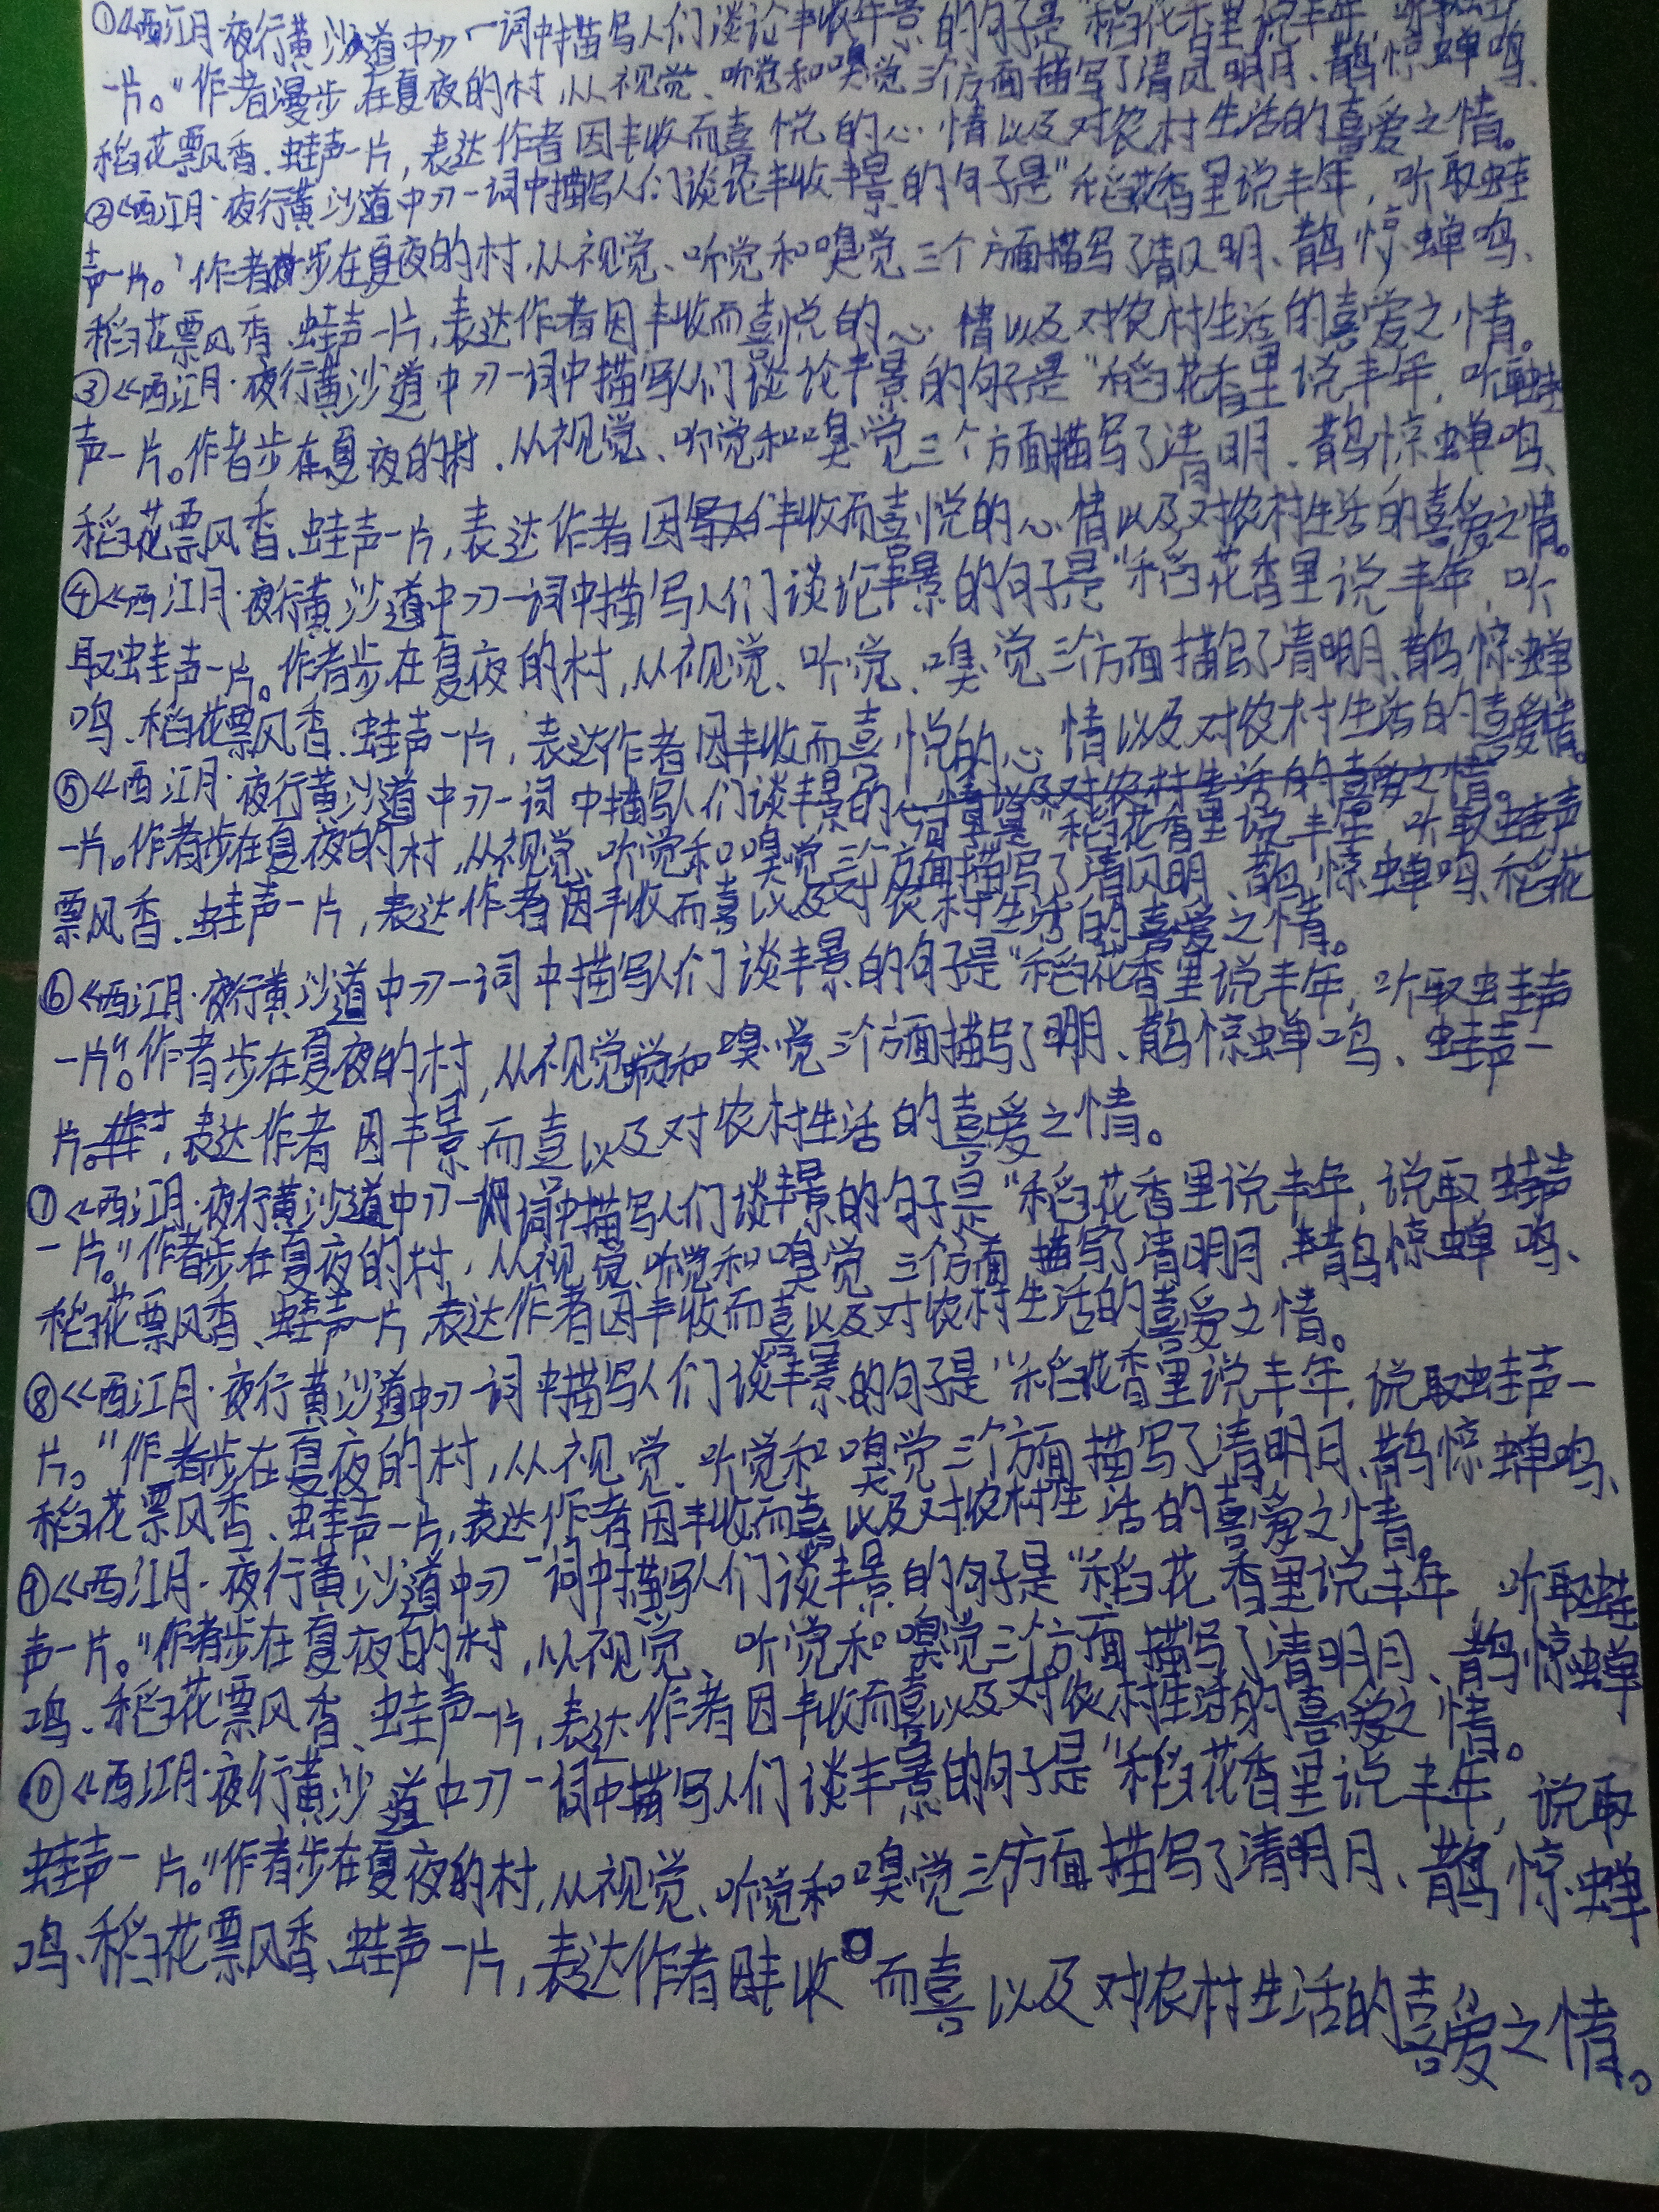 ①《西江月·夜行黄沙道中》一词中描写人们谈论丰收年景的句子是"稻花香里说丰年，听取蛙声
一片。"作者漫步在夏夜的村，从视觉、听觉和嗅觉三个方面描写了清风明月、鹊惊蝉鸣、
稻花飘香、蛙声一片，表达作者因丰收而喜悦的心情以及对农村生活的喜爱之情。
②《西江月·夜行黄沙道中》一词中描写人们谈论丰收年景的句子是"稻花香里说丰年，听取蛙
声一片。"作者步在夏夜的村，从视觉、听觉和嗅觉三个方面描写了清风明、鹊惊蝉鸣、
稻花飘香、蛙声一片，表达作者因丰收而喜悦的心情以及对农村生活的喜爱之情。
③《西江月·夜行黄沙道中》一词中描写人们谈论丰景的句子是"稻花香里说丰年，听取蛙
声一片。作者步在夏夜的村，从视觉、听觉和嗅觉三个方面描写了清明、鹊惊蝉鸣、
稻花飘香、蛙声一片，表达作者因丰收而喜悦的心情以及对农村生活的喜爱之情。
④《西江月·夜行黄沙道中》一词中描写人们谈论丰景的句子是"稻花香里说丰年，听
取蛙声一片。作者步在夏夜的村，从视觉、听觉、嗅觉三个方面描写了清明月、鹊惊蝉
鸣、稻花飘香、蛙声一片，表达作者因丰收而喜悦的心情以及对农村生活的喜爱情。
⑤《西江月·夜行黄沙道中》一词中描写人们谈丰景的句子是"稻花香里说丰年，听取蛙声
一片。作者步在夏夜的村，从视觉、听觉和嗅觉三个方面描写了清风明、鹊惊蝉鸣、稻花
飘香、蛙声一片，表达作者因丰收而喜以及对农村生活的喜爱之情。
⑥《西江月·夜行黄沙道中》一词中描写人们谈丰景的句子是"稻花香里说丰年，听取蛙声
一片。"作者步在夏夜的村，从视觉和嗅觉三个方面描写了明月、鹊惊蝉鸣、蛙声一
片。，表达作者因丰景而喜以及对农村生活的喜爱之情。
⑦《西江月·夜行黄沙道中》一词中描写人们谈丰景的句子是"稻花香里说丰年，说取蛙声
一片。"作者步在夏夜的村，从视觉、听觉和嗅觉三个方面描写了清明月、鹊惊蝉鸣、
稻花飘香、蛙声一片，表达作者因丰收而喜以及对农村生活的喜爱之情。
⑧《西江月·夜行黄沙道中》一词中描写人们谈丰景的句子是"稻花香里说丰年，说取蛙声一
片。"作者步在夏夜的村，从视觉、听觉和嗅觉三个方面描写了清明月、鹊惊蝉鸣、
稻花飘香、蛙声一片，表达作者因丰收而喜以及对农村生活的喜爱之情。
⑨《西江月·夜行黄沙道中》一词中描写人们谈丰景的句子是"稻花香里说丰年，听取蛙
声一片。"作者步在夏夜的村，从视觉、听觉和嗅觉三个方面描写了清明月、鹊惊蝉
鸣、稻花飘香、蛙声一片，表达作者因丰收而喜以及对农村生活的喜爱之情。
⑩《西江月·夜行黄沙道中》一词中描写人们谈丰景的句子是"稻花香里说丰年，说取
蛙声一片。"作者步在夏夜的村，从视觉、听觉和嗅觉三个方面描写了清明月、鹊惊蝉
鸣、稻花飘香、蛙声一片，表达作者因丰收而喜以及对农村生活的喜爱之情。